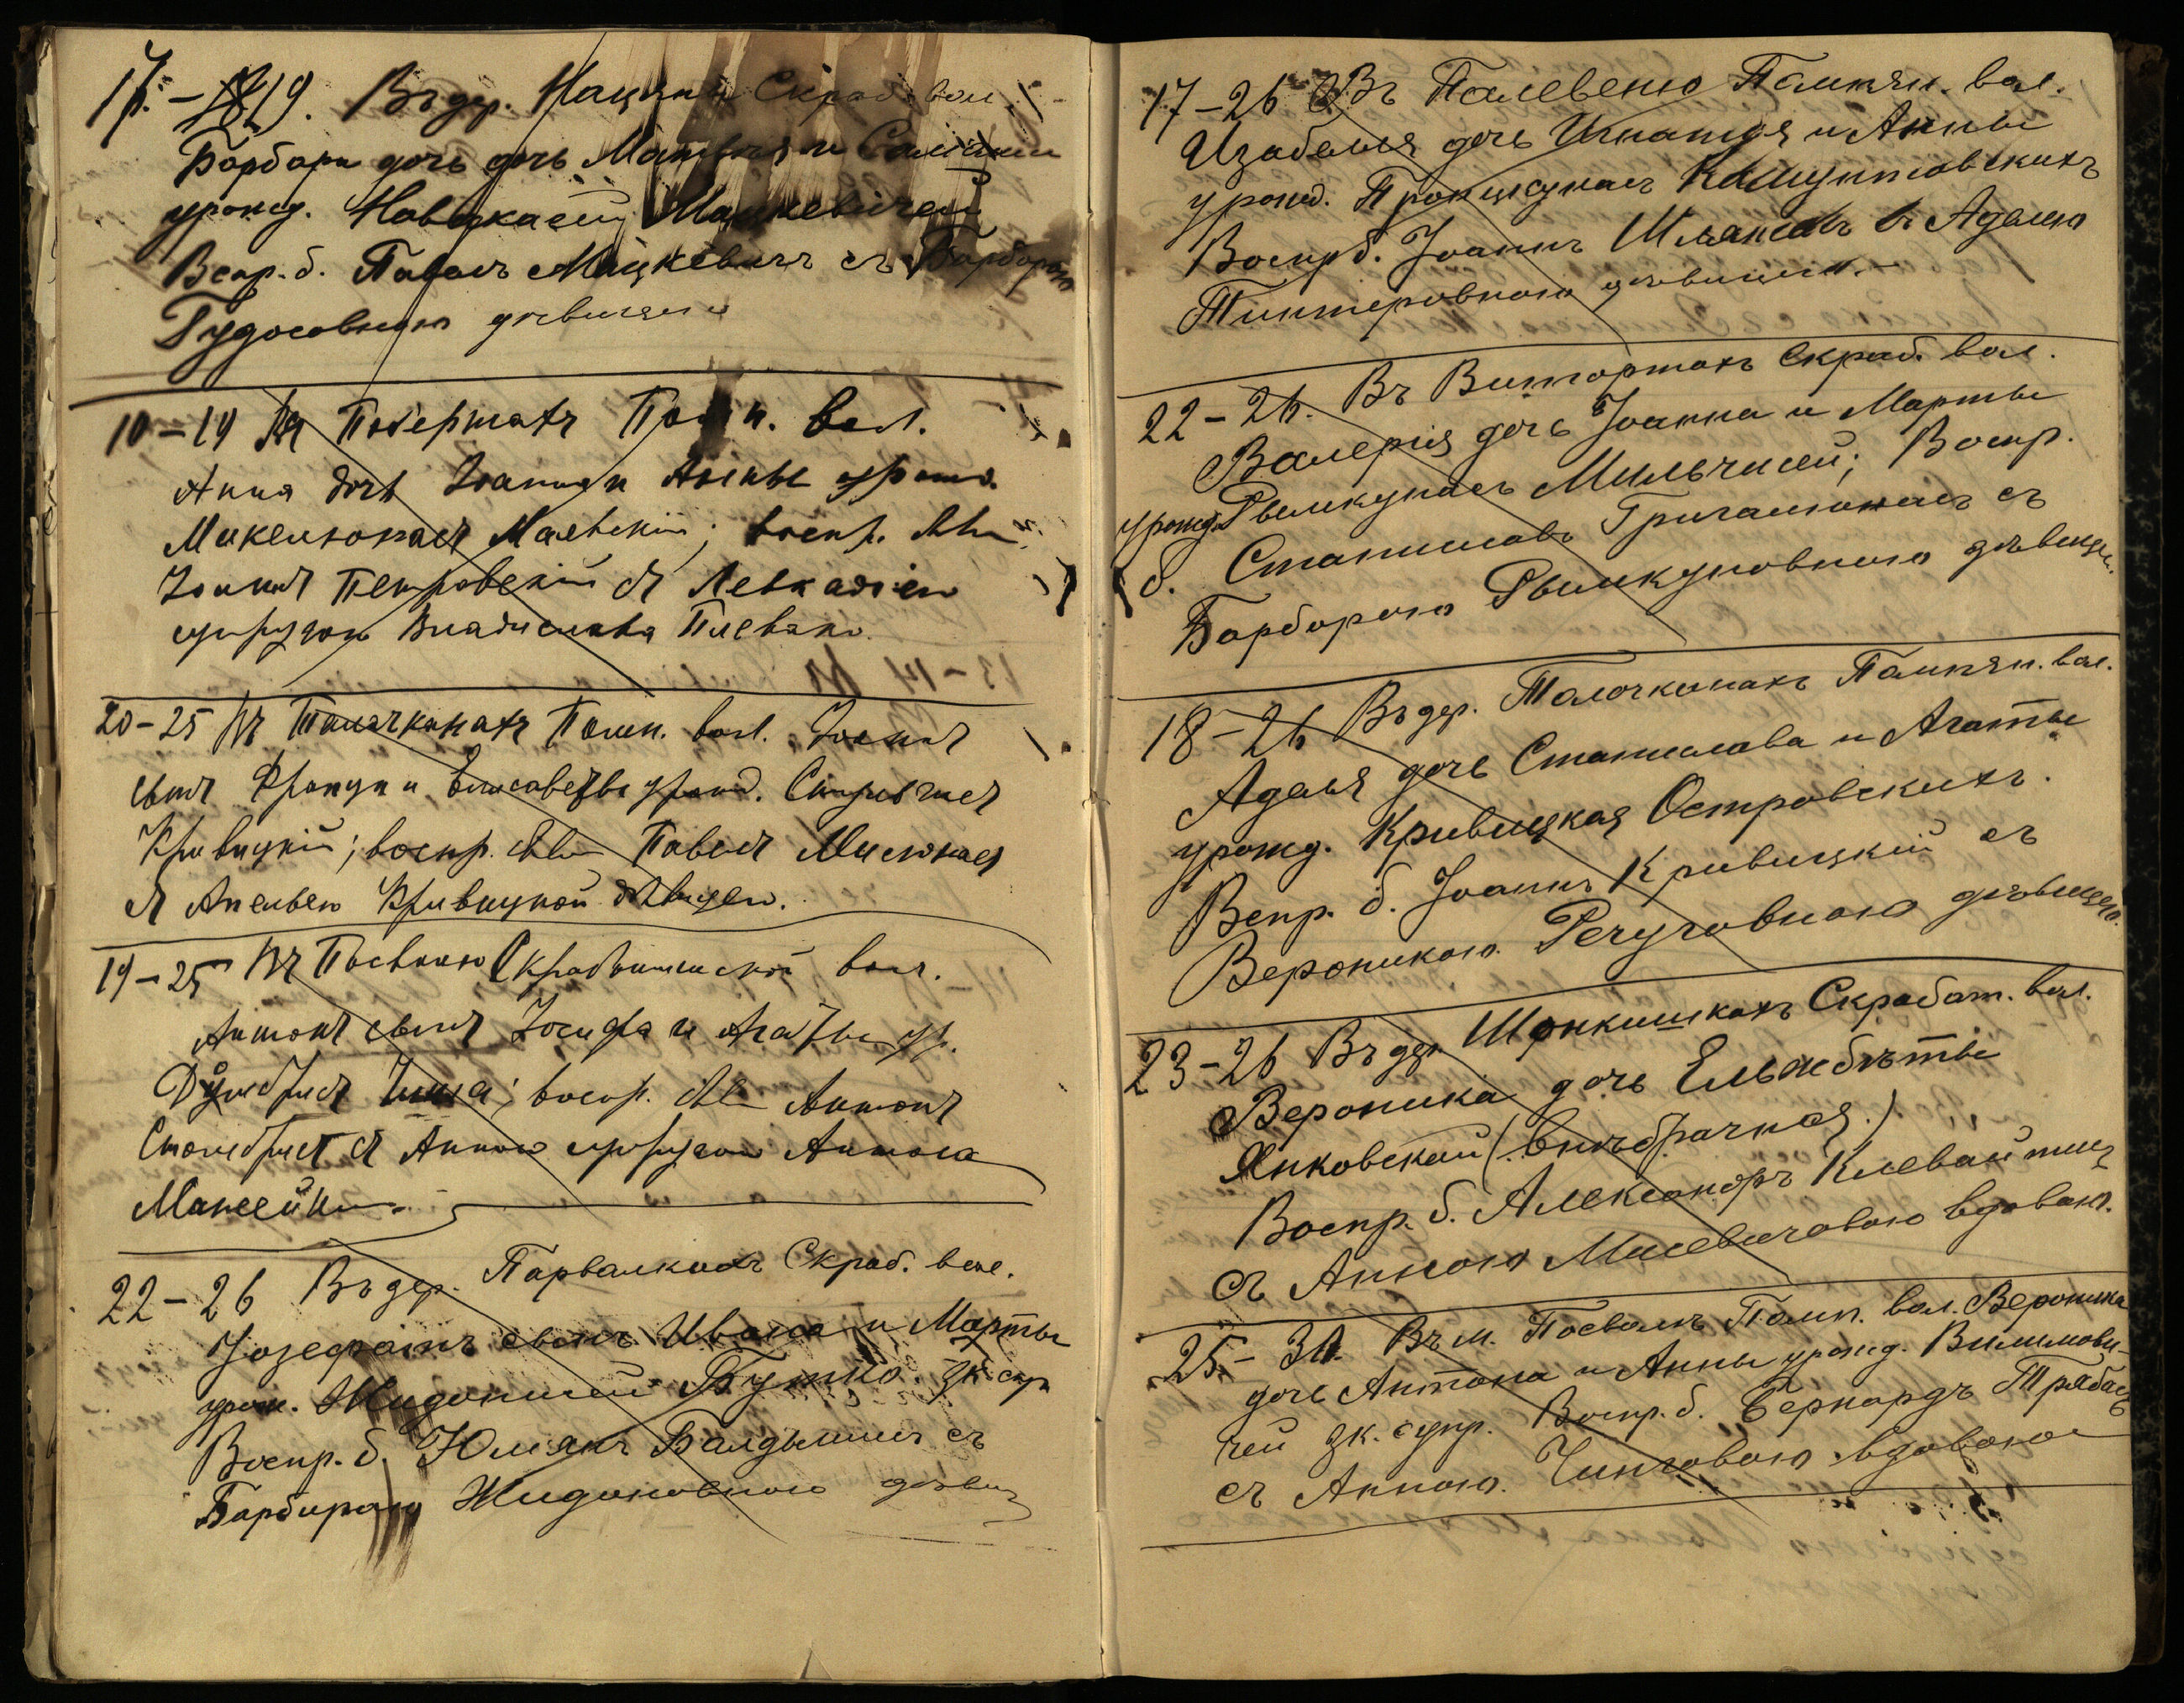 17. – 19. Въ дер. Нацюны Скраб. вол.
Барбара дочь дочь Матвѣя и Саломеи
урожд. Новицкасъ Мацкевичей
Вспр. б. Павелъ Мацкевичъ съ Барборою
Гудосовною дѣвицею
10 – 19 Въ Повертахъ Помп. вол.
Анна дочь Іоанна и Анны урожд.
Микелюнасъ Маевскій; воспр. были
Іоаннъ Петровскій съ Левкадіею
супругою Владислава Плевако.
20 – 25 Въ Талачканахъ Помп. вол. Іоаннъ
сынъ Франца и Елисаветы урожд.
Кривицкій; воспр. были Павелъ Мисюнасъ
съ Анелею Кривицкой дѣвицею.
19 – 25 Въ Посвяню Скрабатишской вол.
Антонъ сынъ Іосифа и Агаты ур.
воспр. были Антонъ
съ Анною супругою Антона
22 – 26 Въ дер. Парвалкахъ Скраб. вол.
Іозефатъ сынъ Ивана и Марты
урож. Жидонисъ Бутко. зк. супр
Воспр. б. Юліанъ Балдышисъ съ
Барборою Жидоновною дѣвиц
17 – 26 Въ Палевеню Помпян. вол.
Изабелля дочь Игнатія и Анны
урожд. Прокцкунасъ Камунтовскихъ
Воспр. б. Іоаннъ съ Аделею
Тинтеровною дѣвицею.
22 – 26. Въ Витортахъ Скраб. вол.
Валерія дочь Іоанна и Марты
урожд. Рымкунасъ Мильчисъ; Воспр.
б. Станиславъ Григалюнасъ съ
Барборою Рымкуновною дѣвицею.
18 – 26 Въ дер. Талочконахъ Помпян. вол.
Аделя дочь Станислава и Агаты
урожд. Кривицкая Островскихъ.
Вспр. б. Іоаннъ Кривицкій съ
Вероникою Речуговною дѣвицею.
23 – 26 Въ дер. Шонкишкахъ Скрабат. вол.
Вероника дочь Ельжбѣты
Янковской (внѣбрачная.)
Воспр. б. Александръ Клевайтисъ
съ Анною Мисевичовою вдовою.
25 – 30. Въ м. Посволѣ Помп. вол. Вероника
дочь Антона и Анны урожд. Вилимови-
чей зк. супр. Воспр. б. Бернардъ Трабасъ
съ Анною Чинговою вдовою